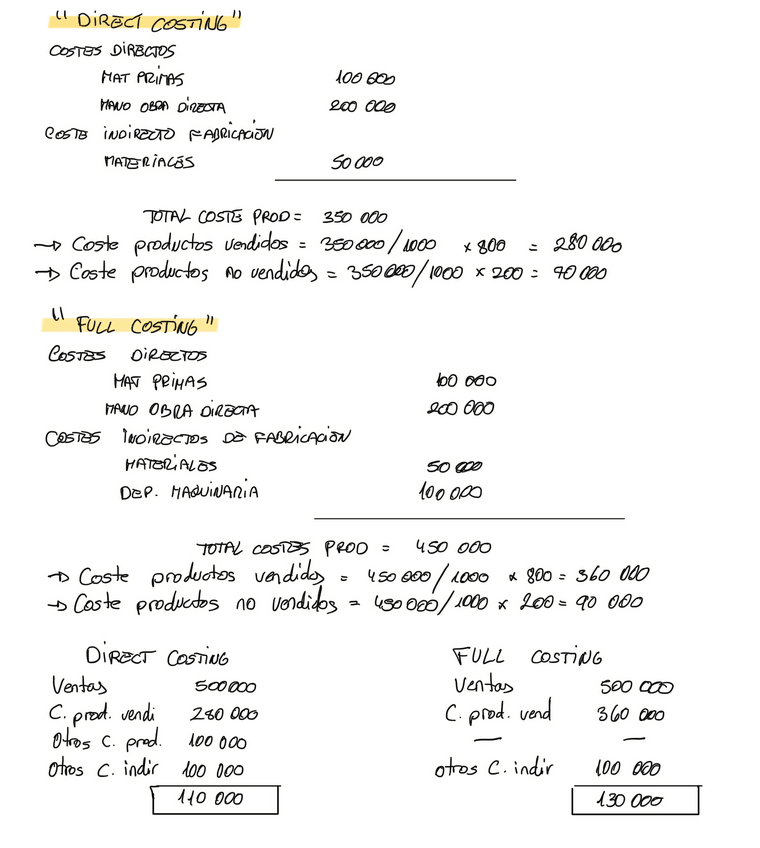 "DIRECT COSTING"
COSTES DIRECTOS
MAT PRIMAS 100 000
MANO OBRA DIRECTA 200 000
COSTE INDIRECTO FABRICACIÓN
MATERIALES 50 000
TOTAL COSTE PROD = 350 000
→ Coste productos vendidos = 350 000/1000 x 800 = 280 000
→ Coste productos no vendidos = 350 000/1000 x 200 = 70 000
"FULL COSTING"
COSTES DIRECTOS
MAT PRIMAS 100 000
MANO OBRA DIRECTA 200 000
COSTES INDIRECTOS DE FABRICACIÓN
MATERIALES 50 000
DEP. MAQUINARIA 100 000
TOTAL COSTES PROD = 450 000
→ Coste productos vendidos = 450 000/1000 x 800 = 360 000
→ Coste productos no vendidos = 450 000/1000 x 200 = 90 000
DIRECT COSTING FULL COSTING
Ventas 500 000 Ventas 500 000
C. prod. vendi 280 000 C. prod. vend 360 000
Otros C. prod. 100 000 — —
Otros C. indir 100 000 otros C. indir 100 000
110 000 130 000